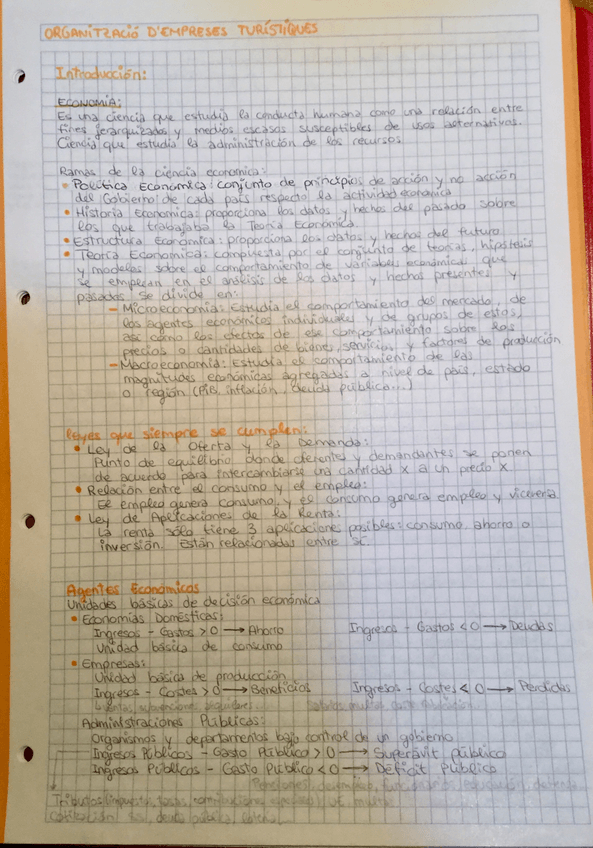 ORGANITZACIÓ D'EMPRESES TURÍSTIQUES
Introducción:
ECONOMIA:
Es una ciencia que estudia la conducta humana como una relación entre
fines jerarquizados y medios escasos susceptibles de usos alternativos.
Ciencia que estudia la administración de los recursos
Ramas de la ciencia economica:
• Política Económica: conjunto de principios de acción y no acción
del Gobierno de cada país respecto la actividad economica
• Historia Economica: proporciona los datos y hechos del pasado sobre
los que trabajaba la Teoría Económica.
• Estructura Económica: proporciona los datos y hechos del futuro.
• Teoría Economica: compuesta por el conjunto de teorías, hipótesis
y modelos sobre el comportamiento de variables económicas que
se emplean en el análisis de los datos y hechos presentes y
pasados. Se divide en:
- Microeconomía: Estudia el comportamiento del mercado, de
los agentes económicos individuales y de grupos de estos,
así como los efectos de ese comportamiento sobre los
precios o cantidades de bienes, servicios y factores de producción
- Macroeconomía: Estudia el comportamiento de las
magnitudes económicas agregadas a nivel de país, estado
o región (PIB, inflación, deuda pública...)
Leyes que siempre se cumplen:
• Ley de la Oferta y la Demanda:
Punto de equilibrio donde oferentes y demandantes se ponen
de acuerdo para intercambiarse una cantidad X a un precio X.
• Relación entre el consumo y el empleo:
El empleo genera consumo y el consumo genera empleo y viceversa
• Ley de Aplicaciones de la Renta:
La renta sólo tiene 3 aplicaciones posibles: consumo, ahorro o
inversión. Están relacionadas entre sí.
Agentes Económicos
Unidades básicas de decisión económica
• Economías Domésticas:
Ingresos - Gastos > 0 → Ahorro Ingresos - Gastos < 0 → Deudas
Unidad básica de consumo
• Empresas:
Unidad básica de producción
Ingresos - Costes > 0 → Beneficios Ingresos - Costes < 0 → Pérdidas
Administraciones Públicas:
Organismos y departamentos bajo control de un gobierno
Ingresos Públicos - Gasto Público > 0 → Superávit público
Ingresos Públicos - Gasto Público < 0 → Déficit Público
Tributos (impuestos, tasas, contribuciones
deuda pública